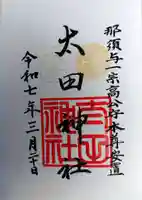 那須与一宗高公守本尊安置
太田神社
令和七年三月二十日